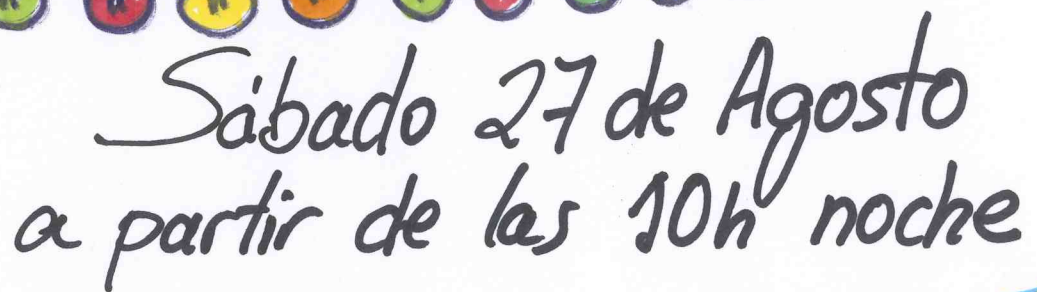 Sábado 27 de Agosto
a partir de las 10h noche